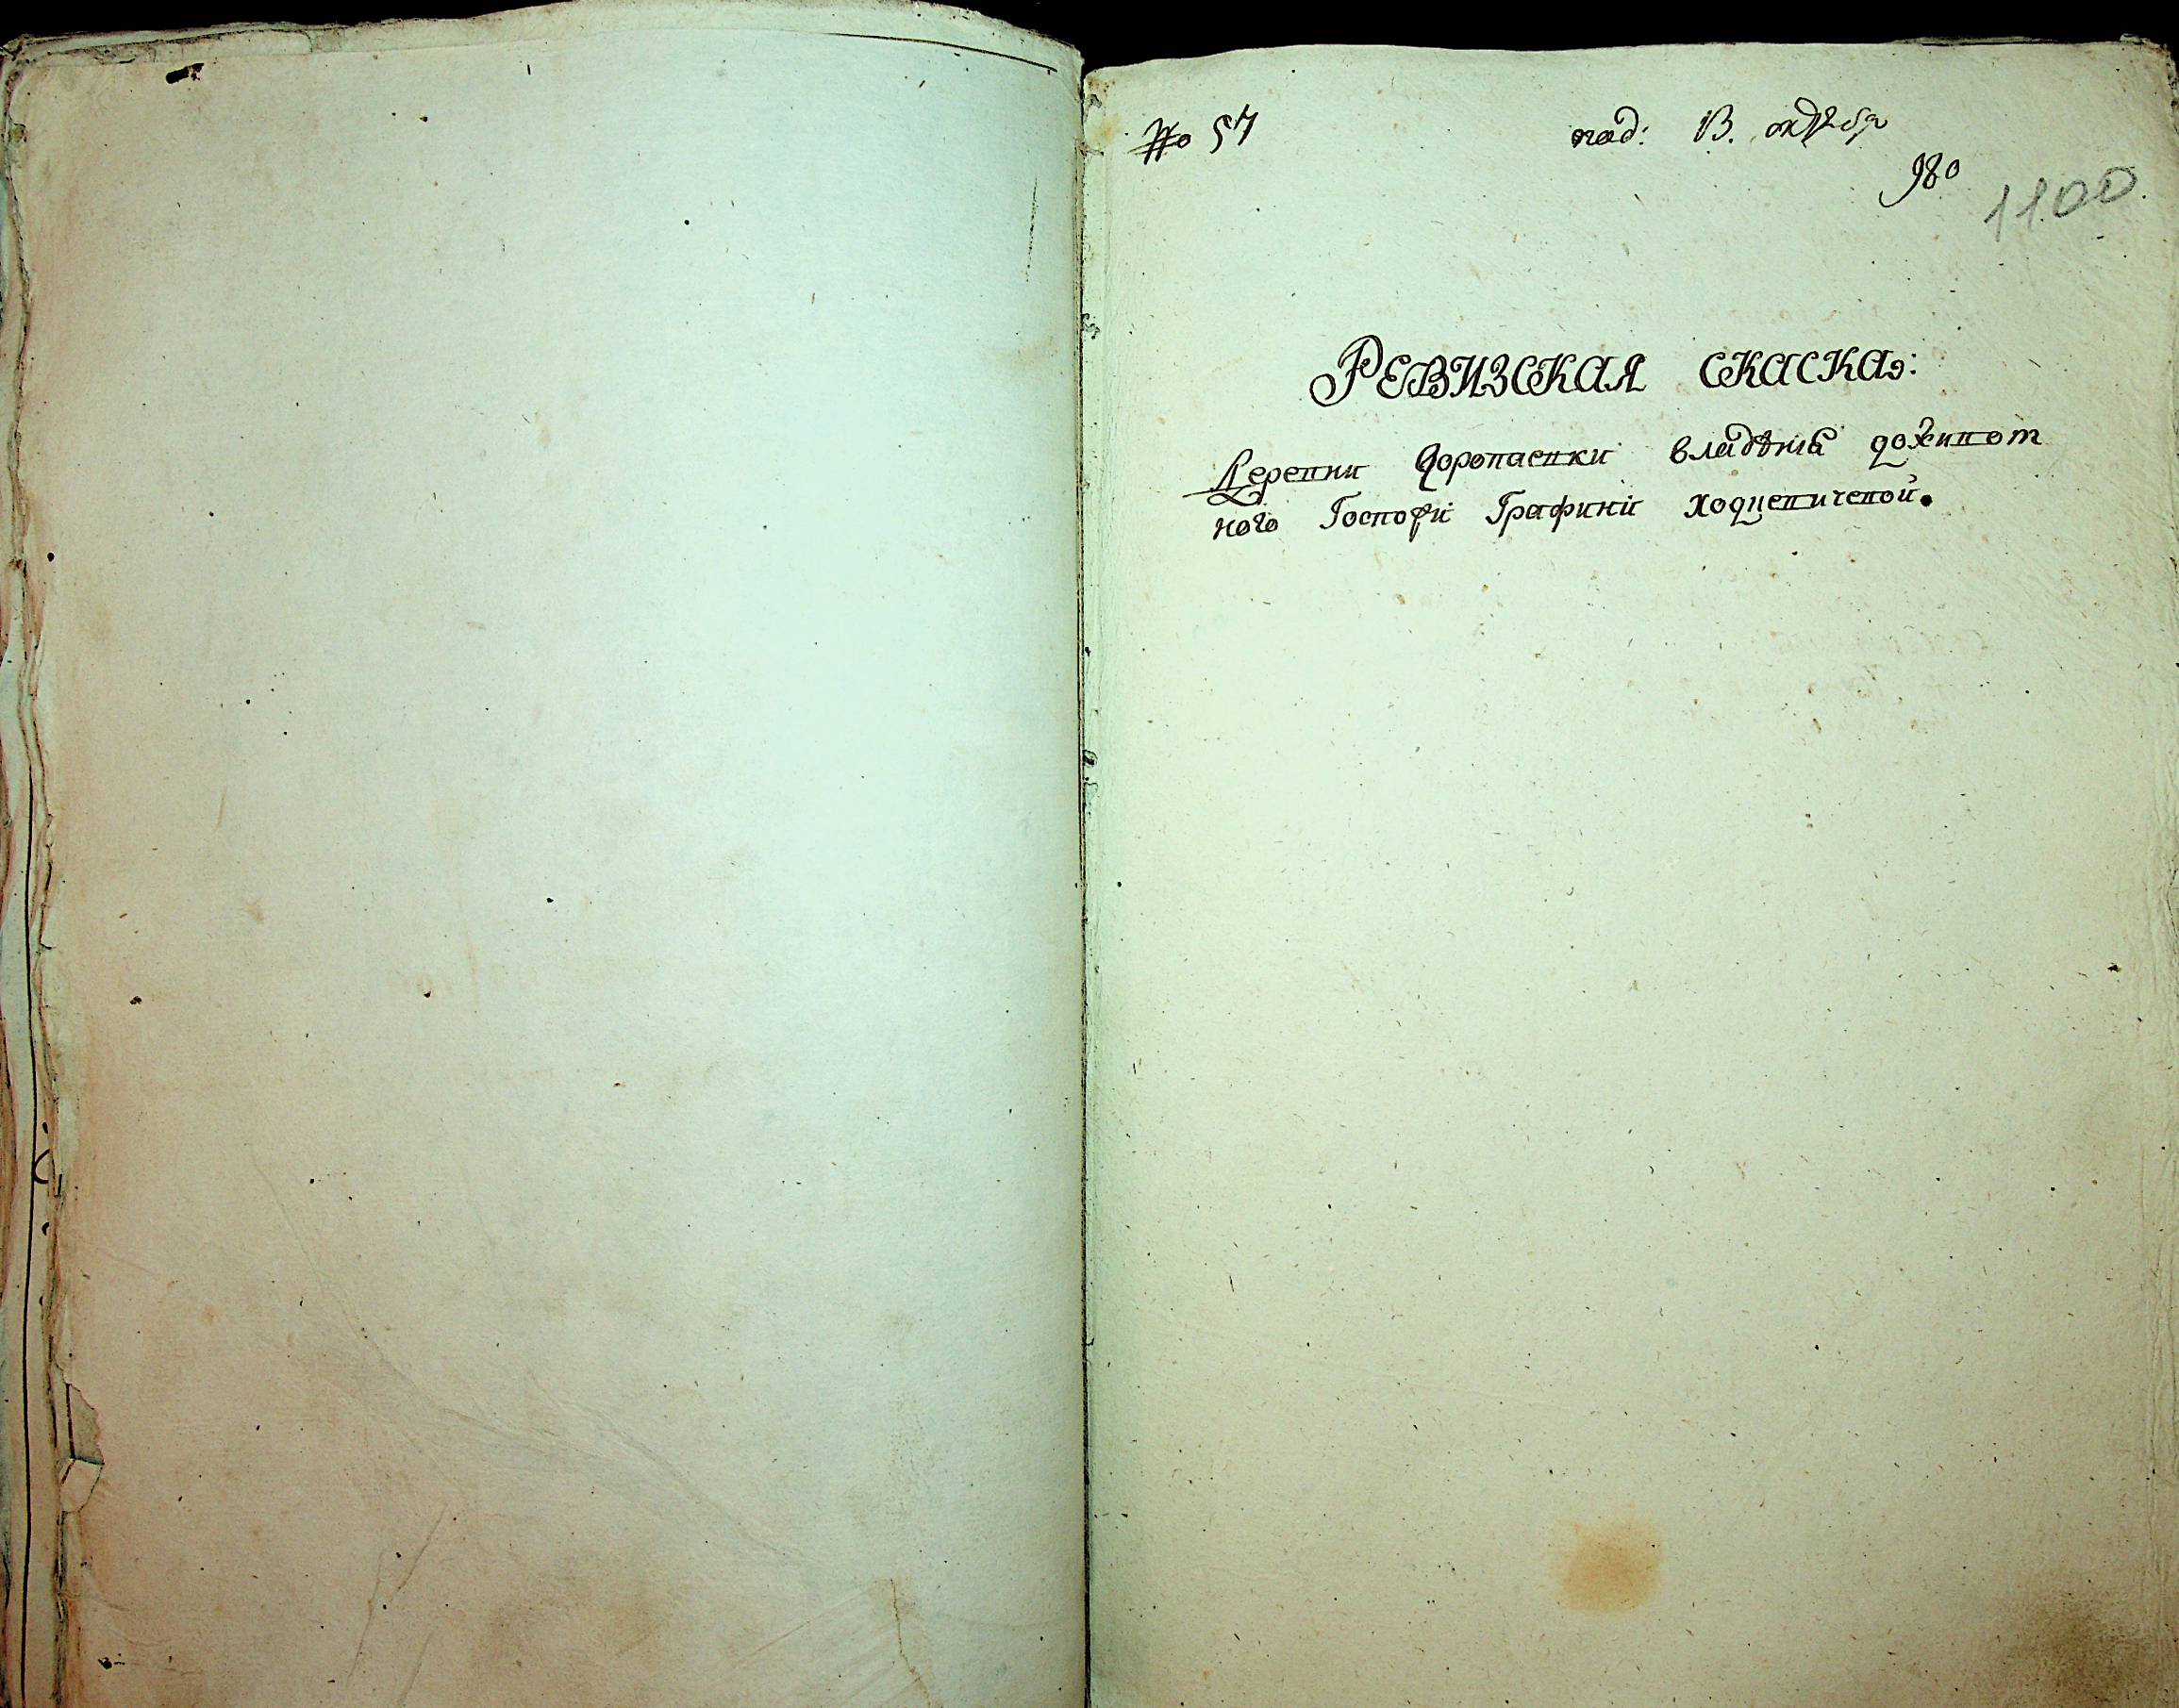 № 57
под: 13. октября
980
1100.
РЕВИЗСКАЯ СКАСКА:
Деревни Доропаевки владѣнія доживот
ного Госпожи Графини Ходкевичевой.